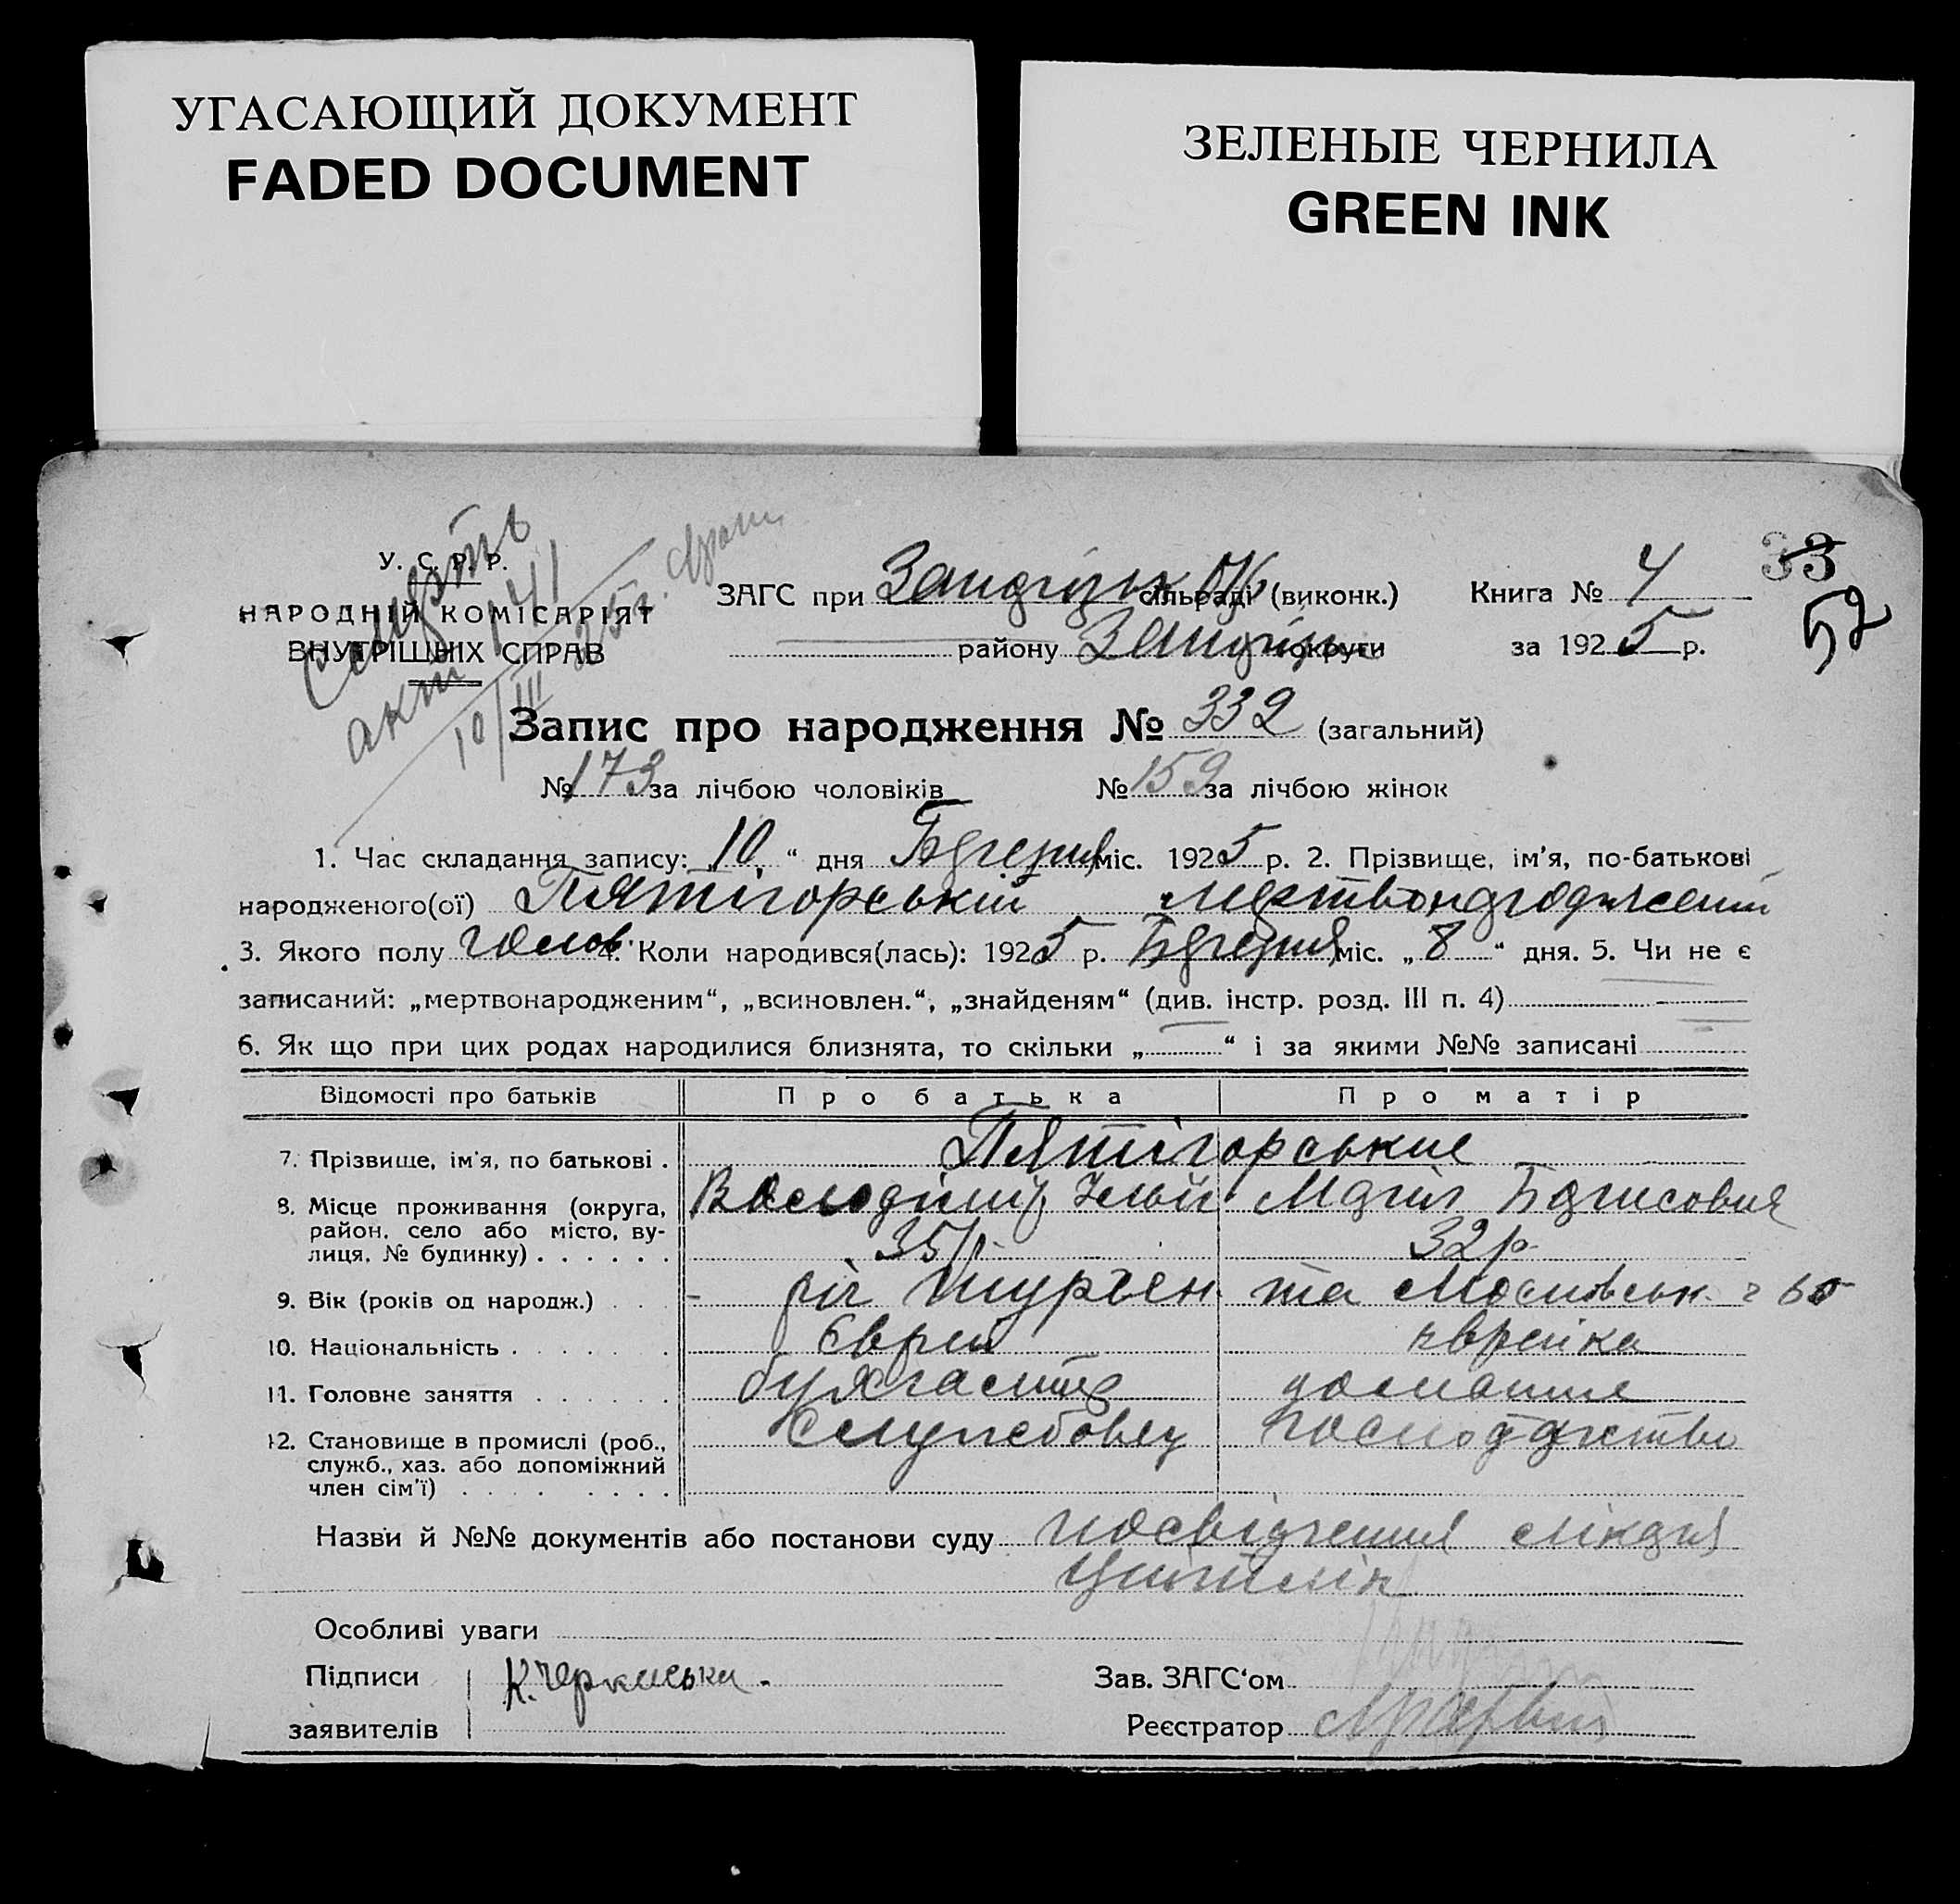 УГАСАЮЩИЙ ДОКУМЕНТ
FADED DOCUMENT
ЗЕЛЕНЫЕ ЧЕРНИЛА
GREEN INK
33
52
Смерть
акт 141
10/III 25 г.
У. С. Р. Р.
НАРОДНІЙ КОМІСАРІЯТ
ВНУТРІШНІХ СПРАВ
ЗАГС при сільраді (виконк.) Книга № 4
району округи за 1925 р.
Запис про народження № 332 (загальний)
№ 173 за лічбою чоловіків № 159 за лічбою жінок
1. Час складання запису: „10“ дня Березня міс. 1925 р. 2. Прізвище, ім’я, по-батькові
народженого(ої) Пятігорський мертвонароджений
3. Якого полу чолов. 4. Коли народився(лась): 1925 р. Березня міс. „8“ дня. 5. Чи не є
записаний: „мертвонародженим“, „всиновлен.“, „знайденям“ (див. інстр. розд. III п. 4)
6. Як що при цих родах народилися близнята, то скільки „ “ і за якими №№ записані
Відомості про батьків Про батька Про матір
7. Прізвище, ім’я, по батькові . Пятігорськие
8. Місце проживання (округа, Володимир Марія Борисовна
район, село або місто, ву- 35 р. 32 р.
лиця, № будинку) . . . . . .
9. Вік (років од народж.) . . . ріг та Московськ.
10. Національність . . . . . . . Єврей єврейка
11. Головне заняття . . . . . . бухгалтер домашнє
12. Становище в промислі (роб., Службовець господарство
служб., хаз. або допоміжний
член сім’ї) . . . . . . . .
Назви й №№ документів або постанови суду посвідчення лікаря
Особливі уваги
Підписи К. Черкаська. Зав. ЗАГС‘ом
заявителів Реєстратор